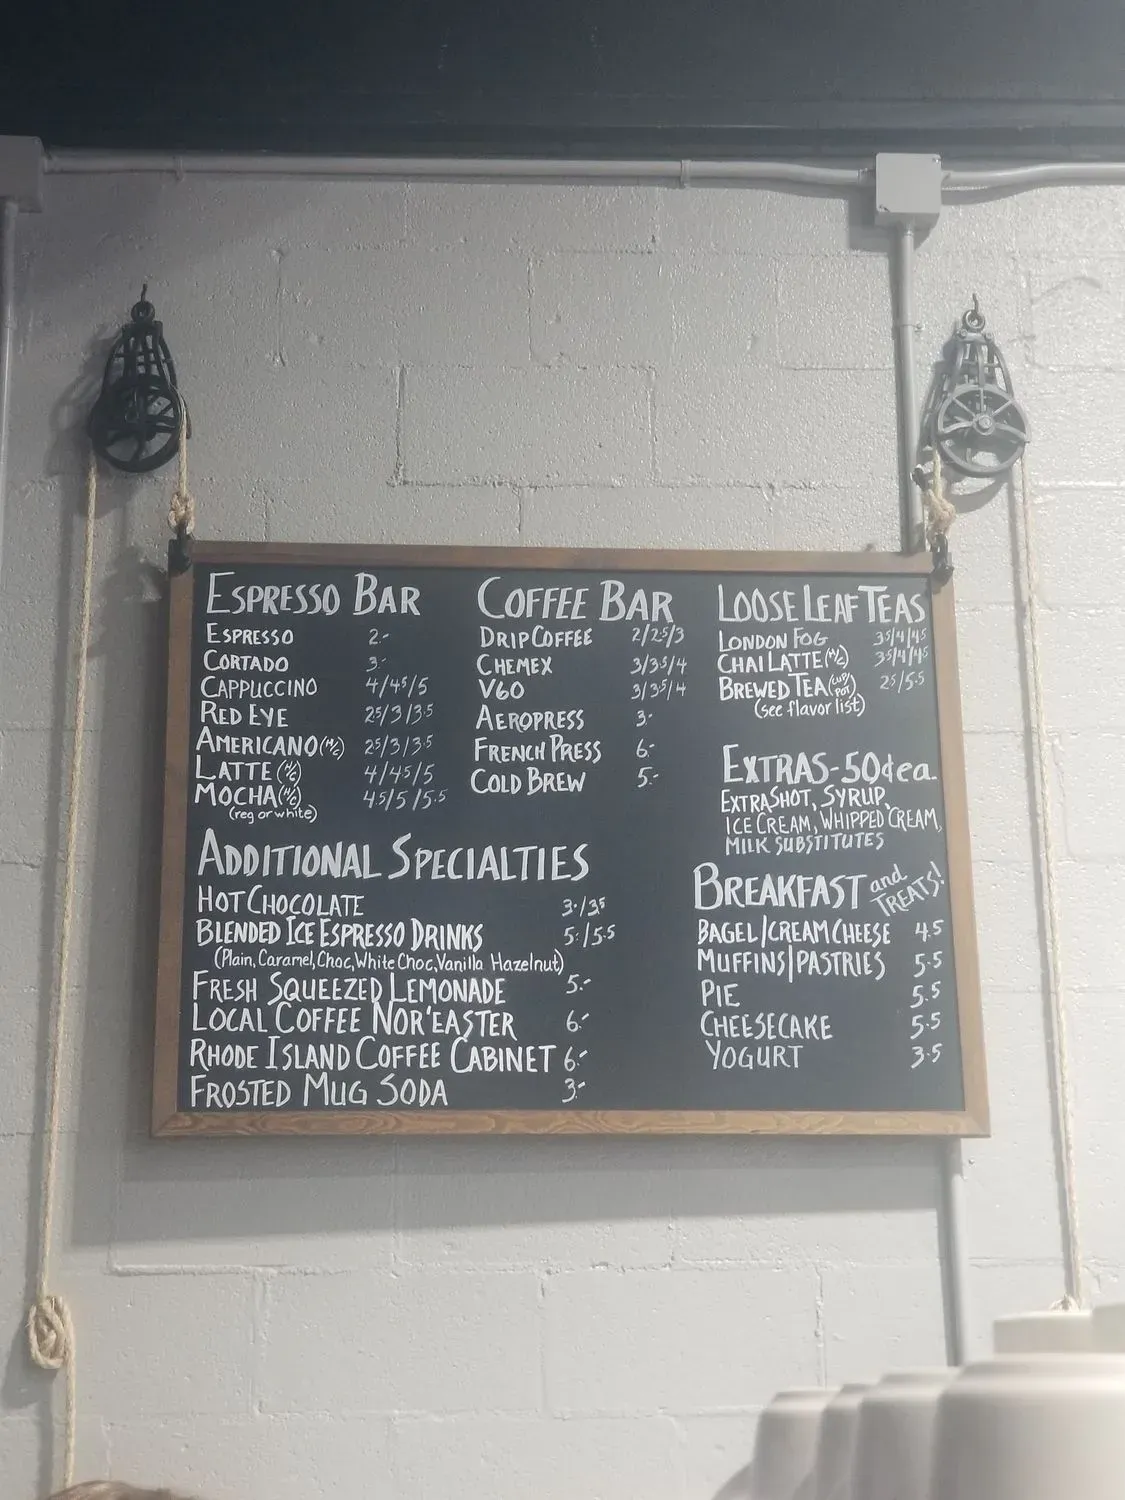 ESPRESSO BAR
ESPRESSO 2.-
CORTADO 3.-
CAPPUCCINO 4/4.5/5
RED EYE 2.5/3/3.5
AMERICANO (H/C) 2.5/3/3.5
LATTE (H/C) 4/4.5/5
MOCHA (H/C) 4.5/5/5.5
(reg or white)
COFFEE BAR
DRIP COFFEE 2/2.5/3
CHEMEX 3/3.5/4
V60 3/3.5/4
AEROPRESS 3.-
FRENCH PRESS 6.-
COLD BREW 5.-
LOOSE LEAF TEAS
LONDON FOG 3.5/4/4.5
CHAI LATTE (H/C) 3.5/4/4.5
BREWED TEA (CUP/POT) 2.5/5.5
(see flavor list)
EXTRAS-50¢ ea.
EXTRA SHOT, SYRUP,
ICE CREAM, WHIPPED CREAM,
MILK SUBSTITUTES
ADDITIONAL SPECIALTIES
HOT CHOCOLATE 3./3.5
BLENDED ICE ESPRESSO DRINKS 5./5.5
(Plain, Caramel, Choc, White Choc, Vanilla Hazelnut)
FRESH SQUEEZED LEMONADE 5.-
LOCAL COFFEE NOR'EASTER 6.-
RHODE ISLAND COFFEE CABINET 6.-
FROSTED MUG SODA 3.-
BREAKFAST and TREATS!
BAGEL/CREAM CHEESE 4.5
MUFFINS|PASTRIES 5.5
PIE 5.5
CHEESECAKE 5.5
YOGURT 3.5